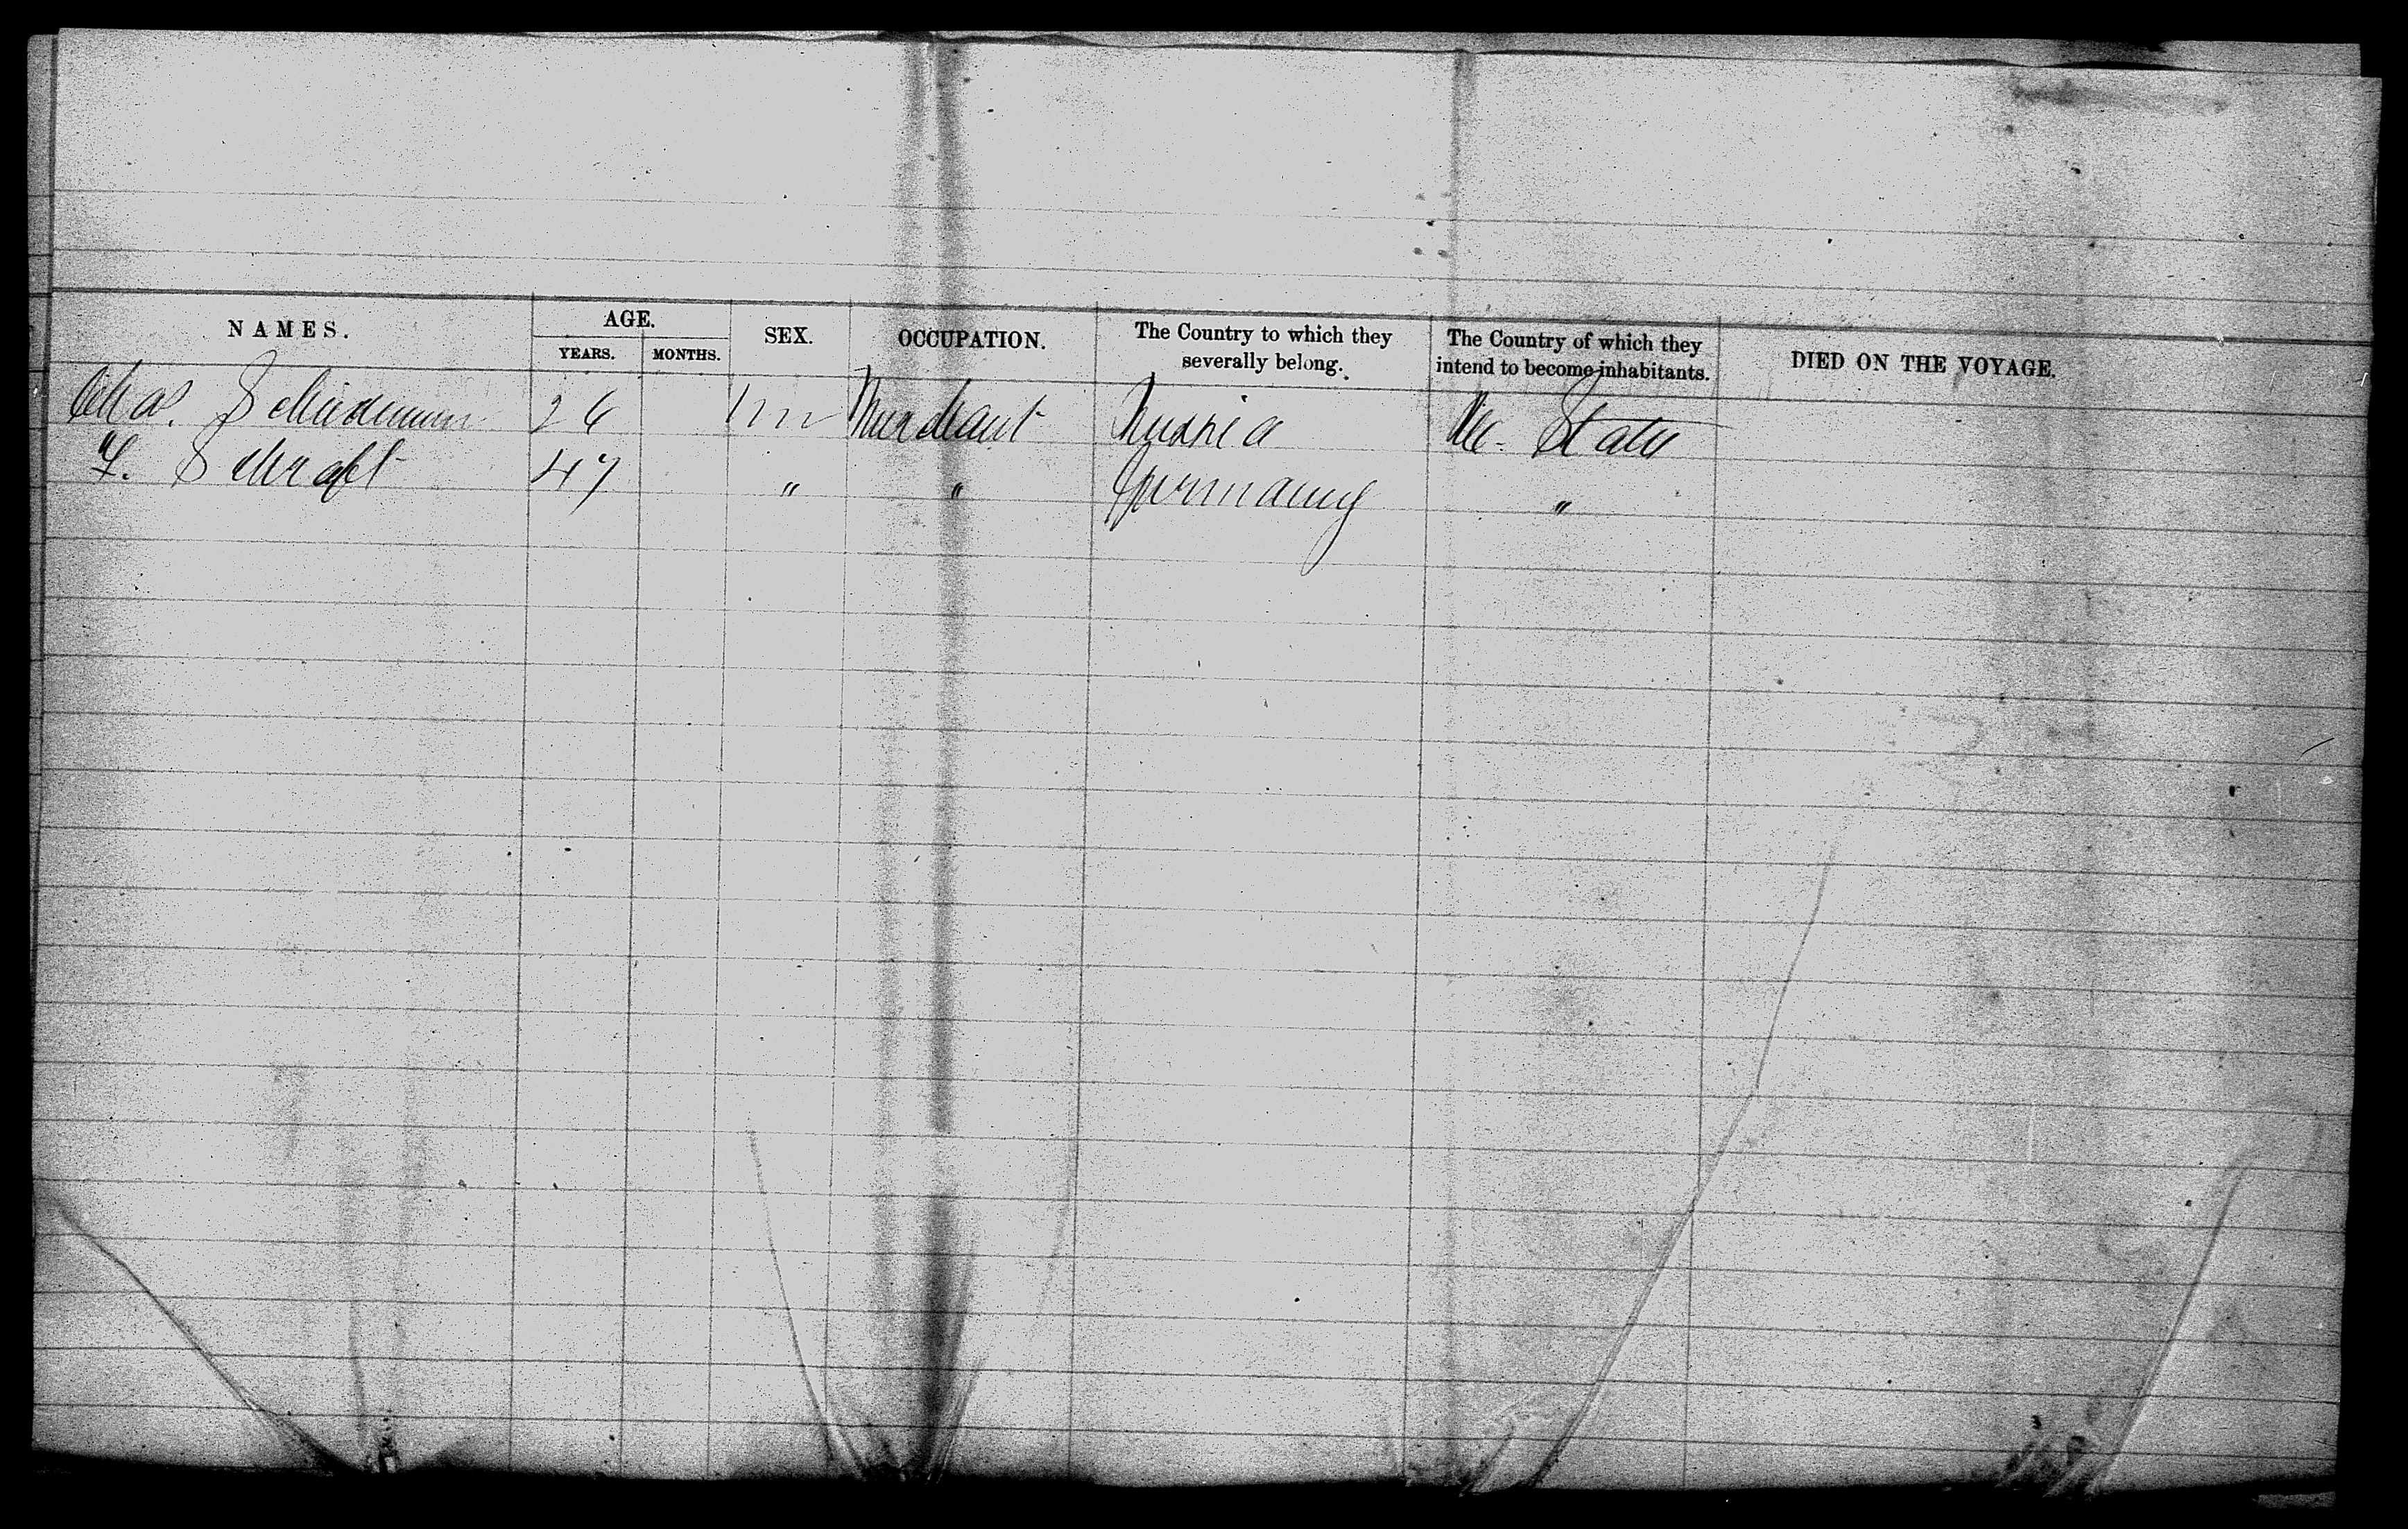 NAMES. AGE. SEX. OCCUPATION. The Country to which they severally belong. The Country of which they intend to become inhabitants. DIED ON THE VOYAGE.
YEARS. MONTHS.
Chas. 26 m Merchant Russia States
F. Schraft 47 " " Germany "